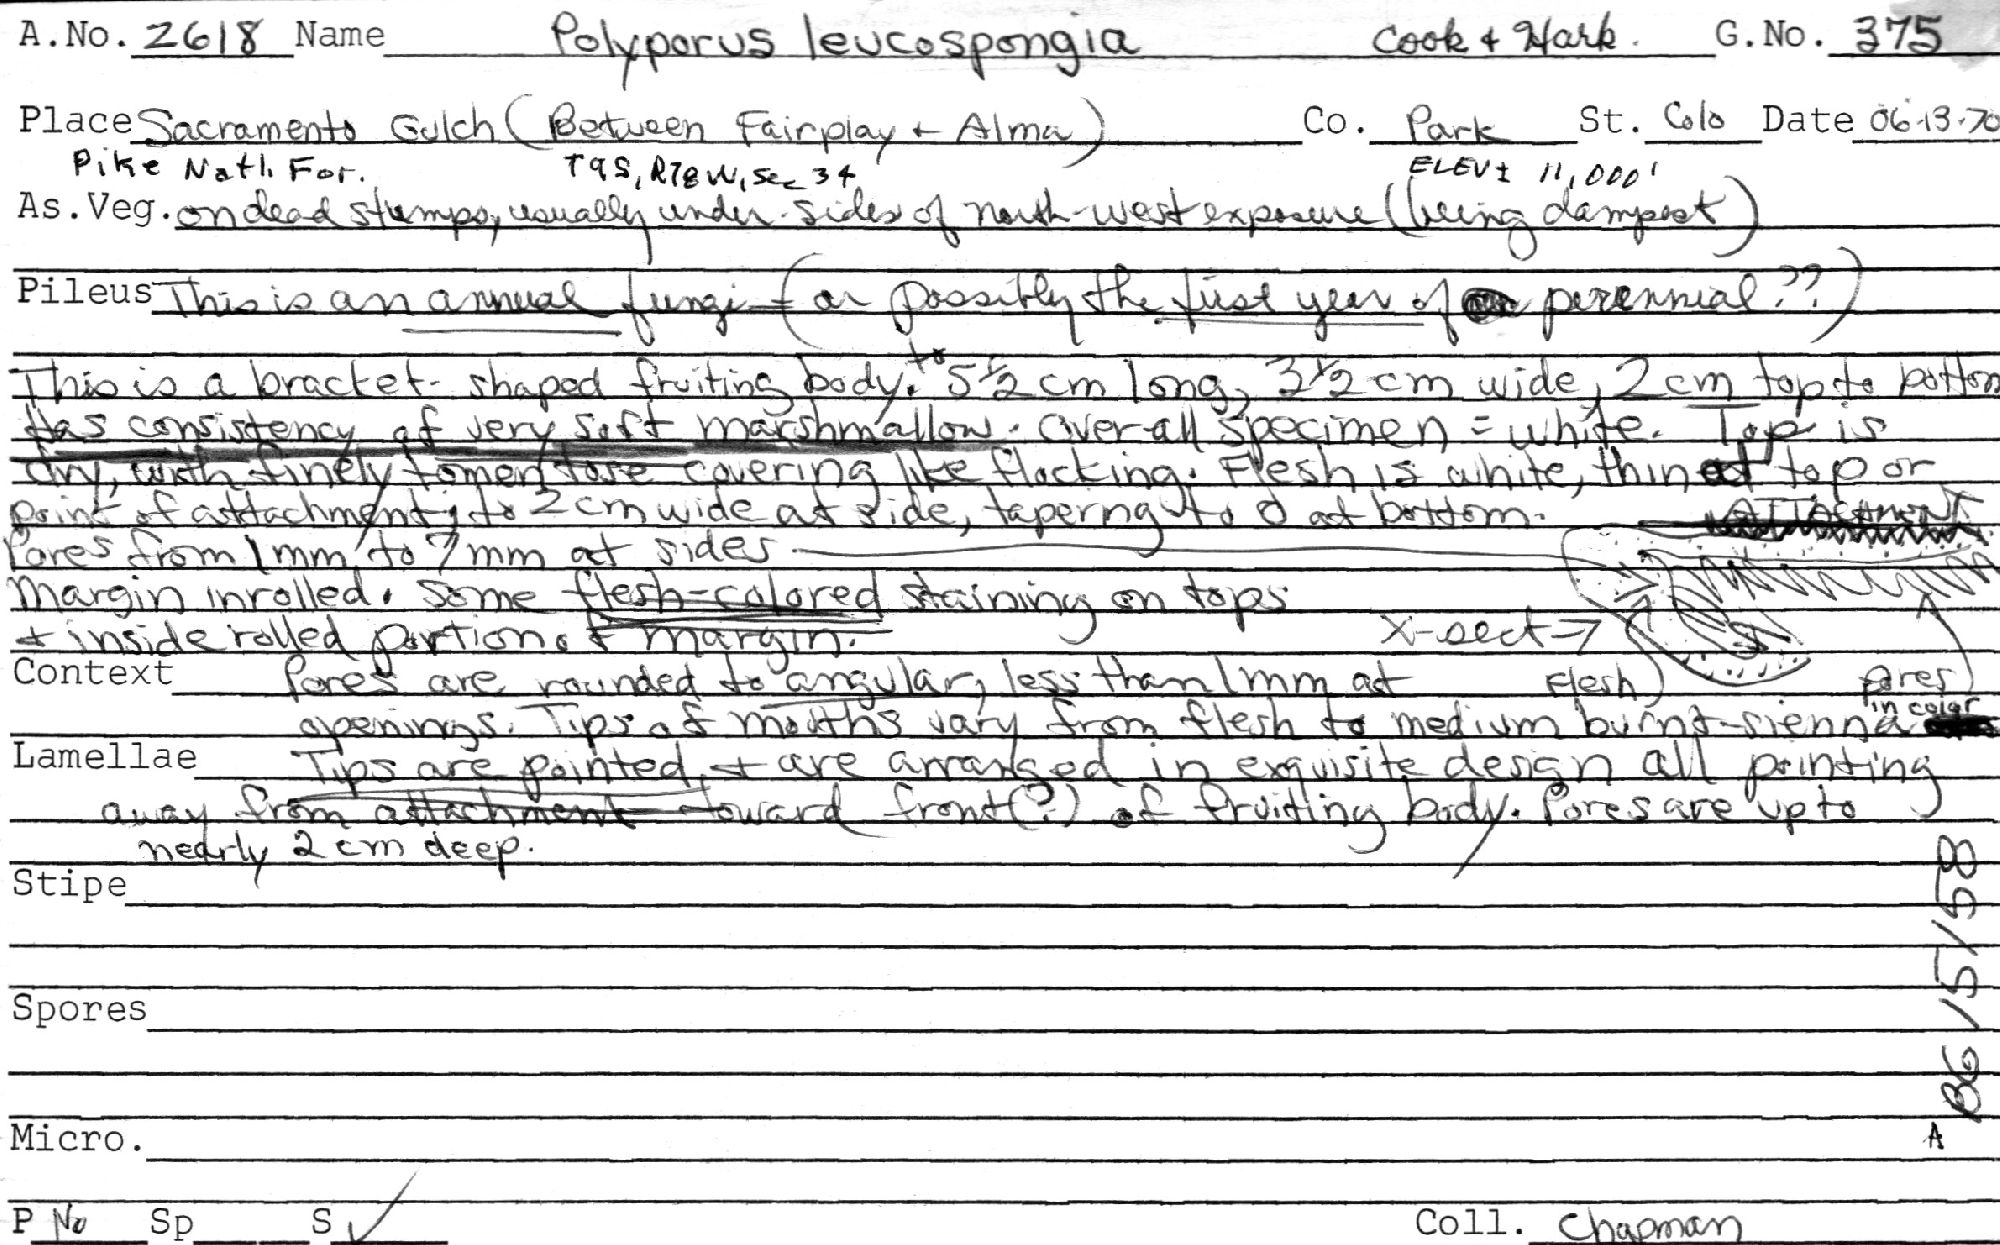 A.No. 2618 Name Polyporus leucospongia Cook & Hark. G.No. 375
Place Sacramento Gulch (Between Fairplay + Alma) Co. Park St. Colo Date 06-13-70
Pike Natl. For. T9S, R78W, Sec 34 ELEV ± 11,000'
As.Veg. on dead stumps, usually under-sides of north-west exposure (being dampest)
Pileus This is an annual fungi (or possibly the first year of perennial??)
This is a bracket-shaped fruiting body. to 5½ cm long, 3½ cm wide, 2 cm top to bottom
Has consistency of very soft marshmallow. Over-all specimen = white. Top is
dry, with finely tomentose covering like flocking. Flesh is white, thin at top or
point of attachment, to 2 cm wide at side, tapering to 0 at bottom.
Pores from 1 mm to 7 mm at sides
Margin inrolled. Some flesh-colored staining on tops
+ inside rolled portion of margin. X-sect →
Context Pores are rounded to angular, less than 1 mm at Flesh pores
openings. Tips of mouths vary from flesh to medium burnt-sienna in color
Lamellae Tips are pointed, + are arranged in exquisite design all pointing
away from attachment toward front (?) of fruiting body. Pores are up to
nearly 2 cm deep.
Stipe
Spores
Micro.
A
B6 15/58
P No Sp S ✓ Coll. Chapman